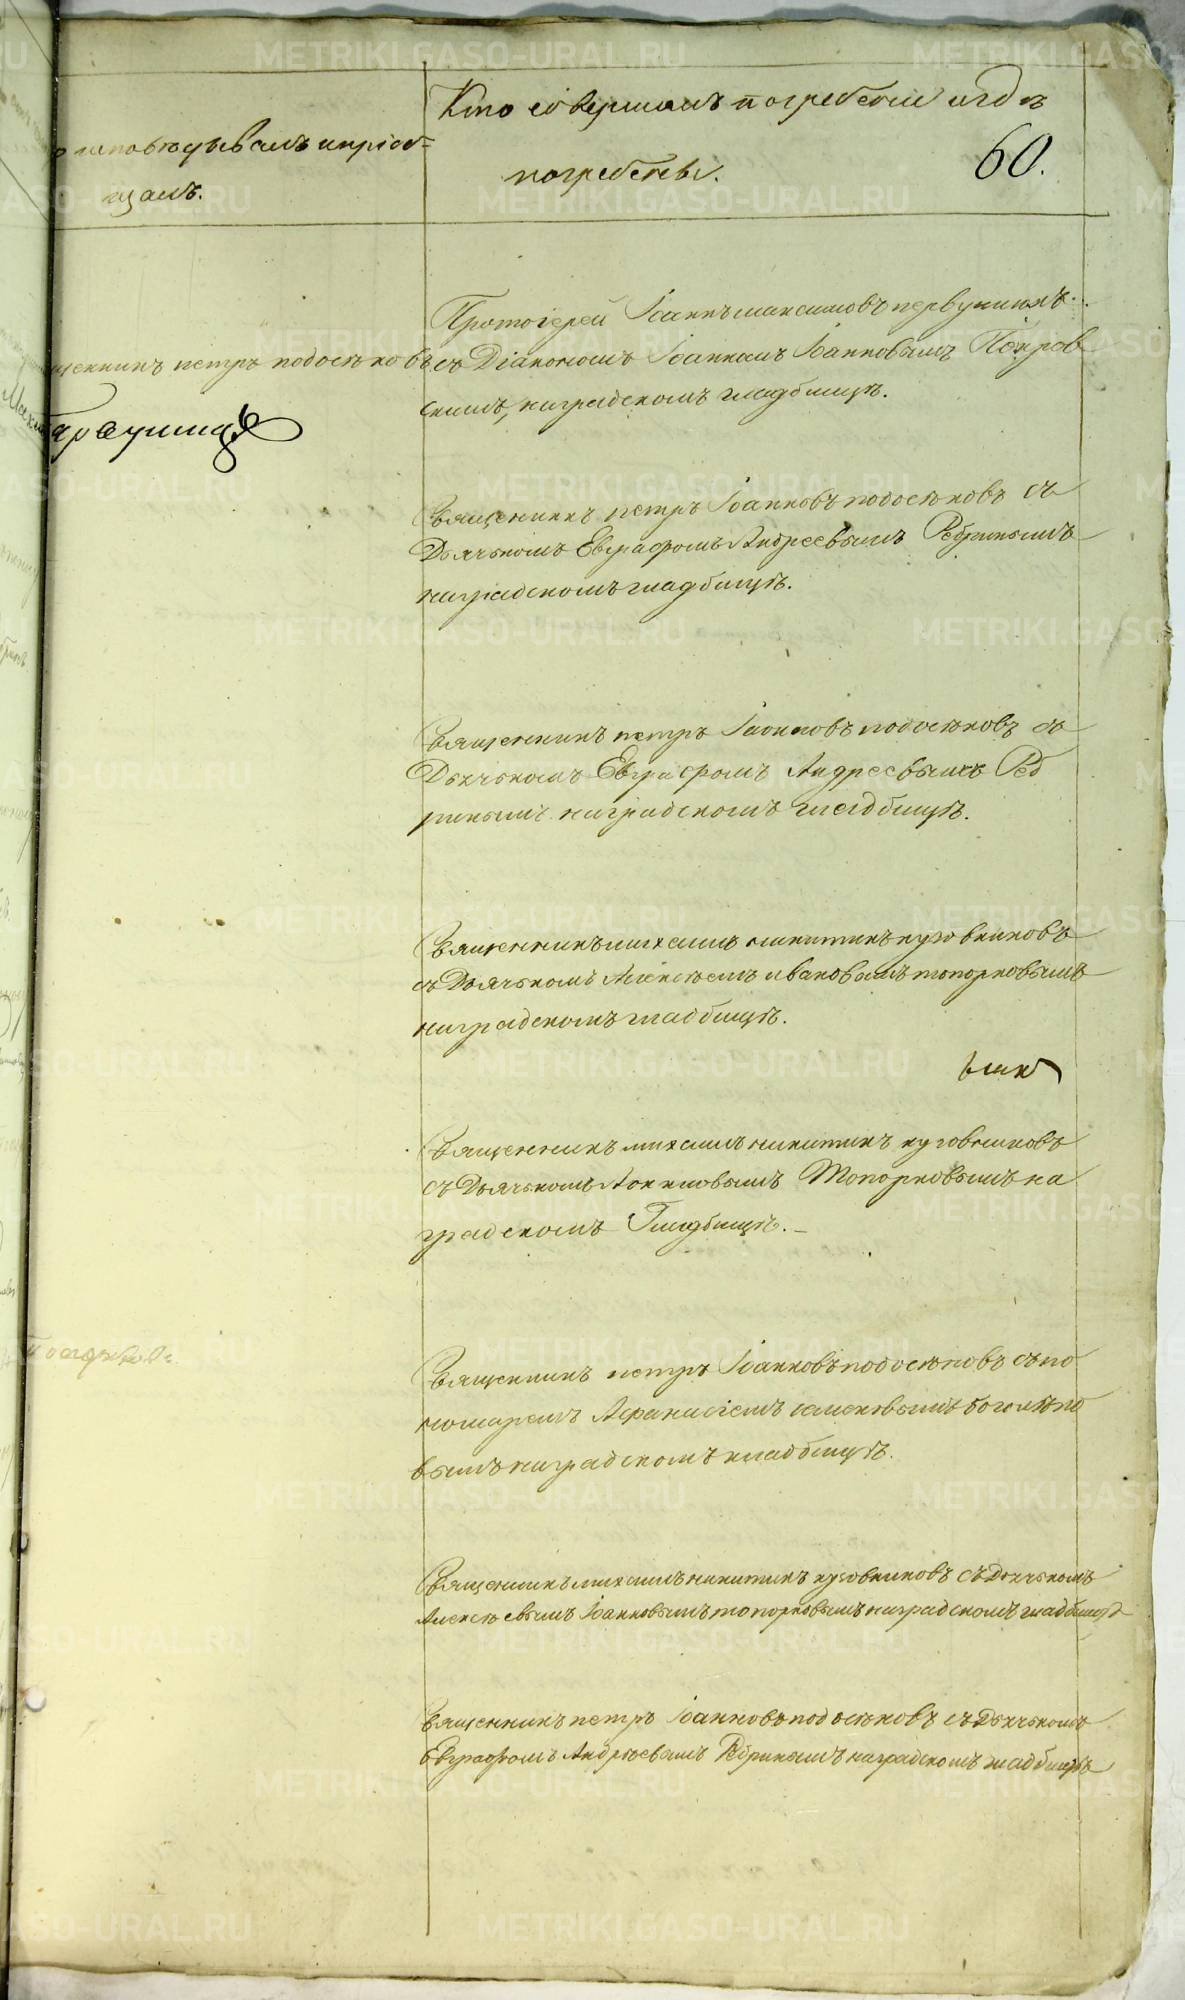 Кто совершалъ погребеніе и гдѣ
погребены.
60.
исповѣдывалъ и пріоб-
щалъ.
Протоіерей Іоаннъ Максимовъ Первушинъ
съ Діакономъ Іоанномъ Іоанновымъ Покров
скимъ, на градскомъ кладбищѣ.
щенникъ Петръ Подосѣновъ
Священникъ Петръ Іоанновъ Подосѣновъ съ
Дьячькомъ Евграфомъ Андреевымъ Ребринымъ
на градскомъ кладбищѣ.
Священникъ Петръ Іоанновъ Подосѣновъ съ
Дьячькомъ Евграфомъ Андреевымъ Реб
ринымъ на градскомъ кладбищѣ.
Священникъ Михаилъ Никитинъ Кузовниковъ
съ Дьячькомъ Алексѣемъ Ивановымъ Топорковымъ
на градскомъ кладбищѣ.
Священникъ Михаилъ Никитинъ Кузовниковъ
съ Дьячькомъ Топорковымъ на
градскомъ Кладбищѣ.
Священникъ Петръ Іоанновъ Подосѣновъ съ по
номаремъ Афанасіемъ Семеновымъ Боголѣпо
вымъ на градскомъ кладбищѣ.
Священникъ Михаилъ Никитинъ Кузовниковъ съ Дьячькомъ
Алексѣевымъ Іоанновымъ Топорковымъ на градскомъ кладбищѣ
Священникъ Петръ Іоанновъ Подосѣновъ съ Дьячькомъ
Евграфомъ Андрѣевымъ Ребринымъ на градскомъ кладбищѣ
METRIKI.GASO-URAL.RU